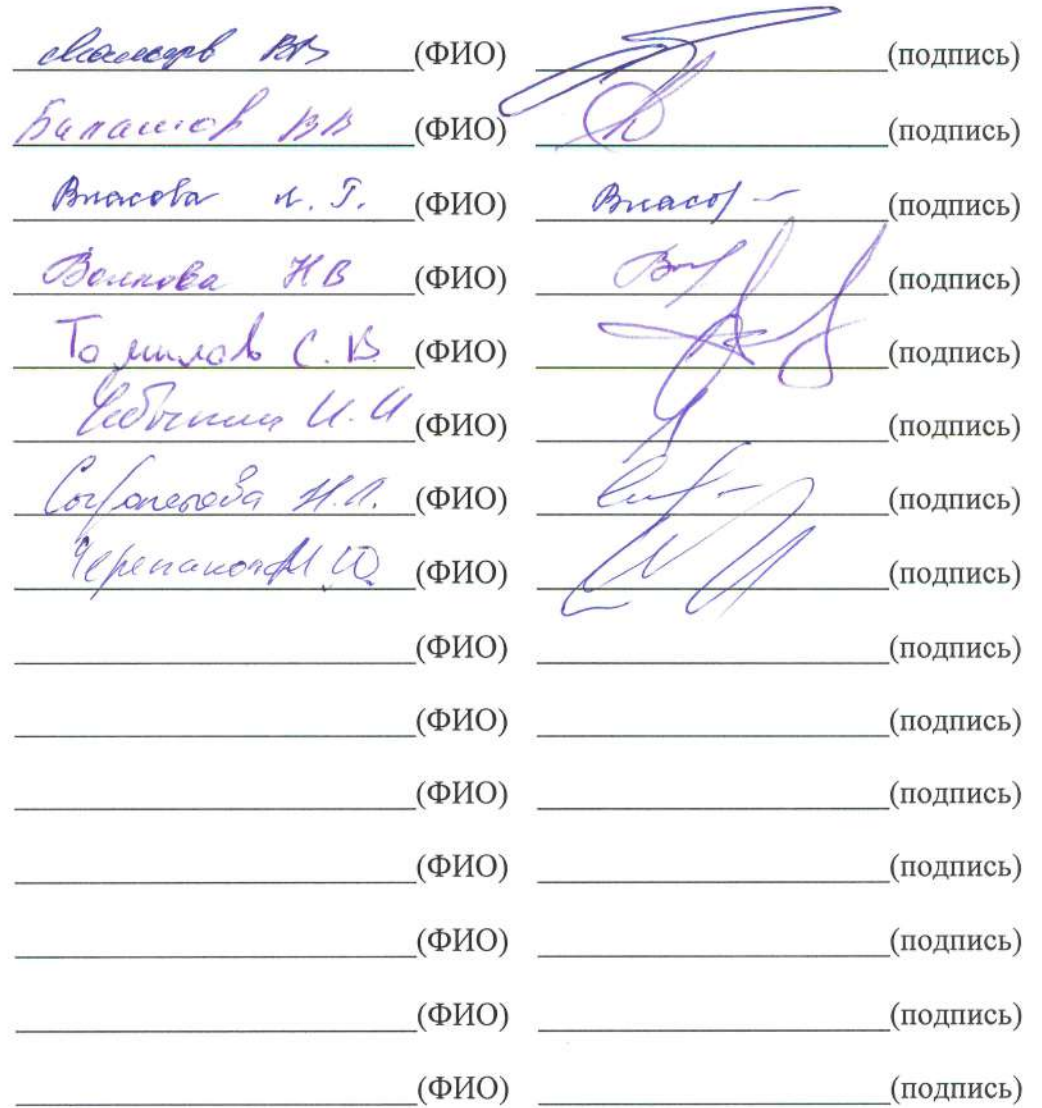 ВВ (ФИО) (подпись)
Балашов ВВ (ФИО) (подпись)
Власова Л. Г. (ФИО) Власо (подпись)
Волкова НВ (ФИО) (подпись)
Томилов С. В (ФИО) (подпись)
И. И (ФИО) (подпись)
Н.Л. (ФИО) (подпись)
Черепанова М Ю (ФИО) (подпись)
(ФИО) (подпись)
(ФИО) (подпись)
(ФИО) (подпись)
(ФИО) (подпись)
(ФИО) (подпись)
(ФИО) (подпись)
(ФИО) (подпись)